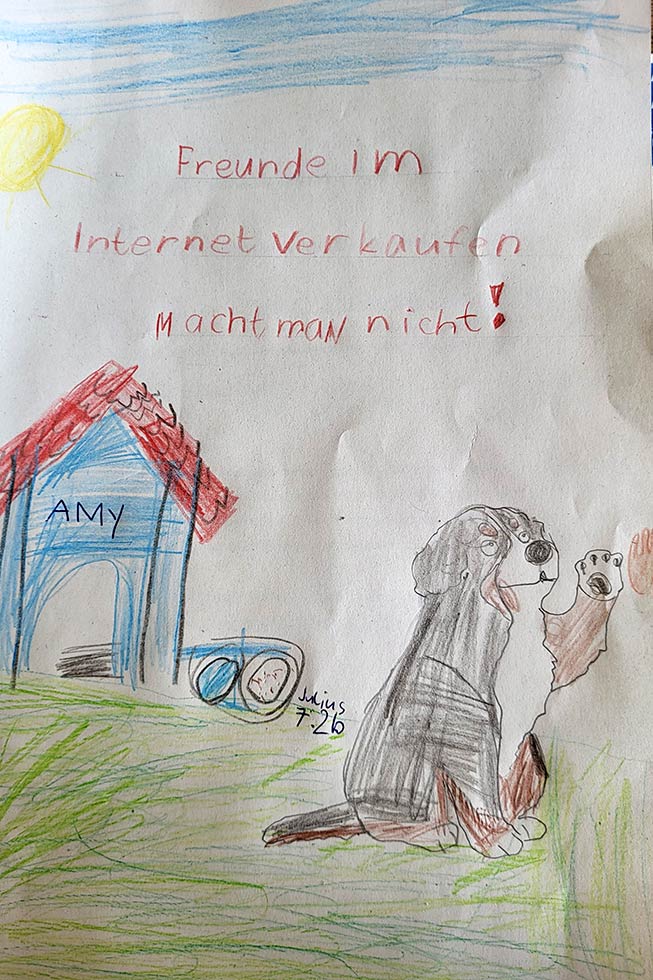 Freunde im
Internet verkaufen
Macht man nicht!
AMY
Julius
7.26